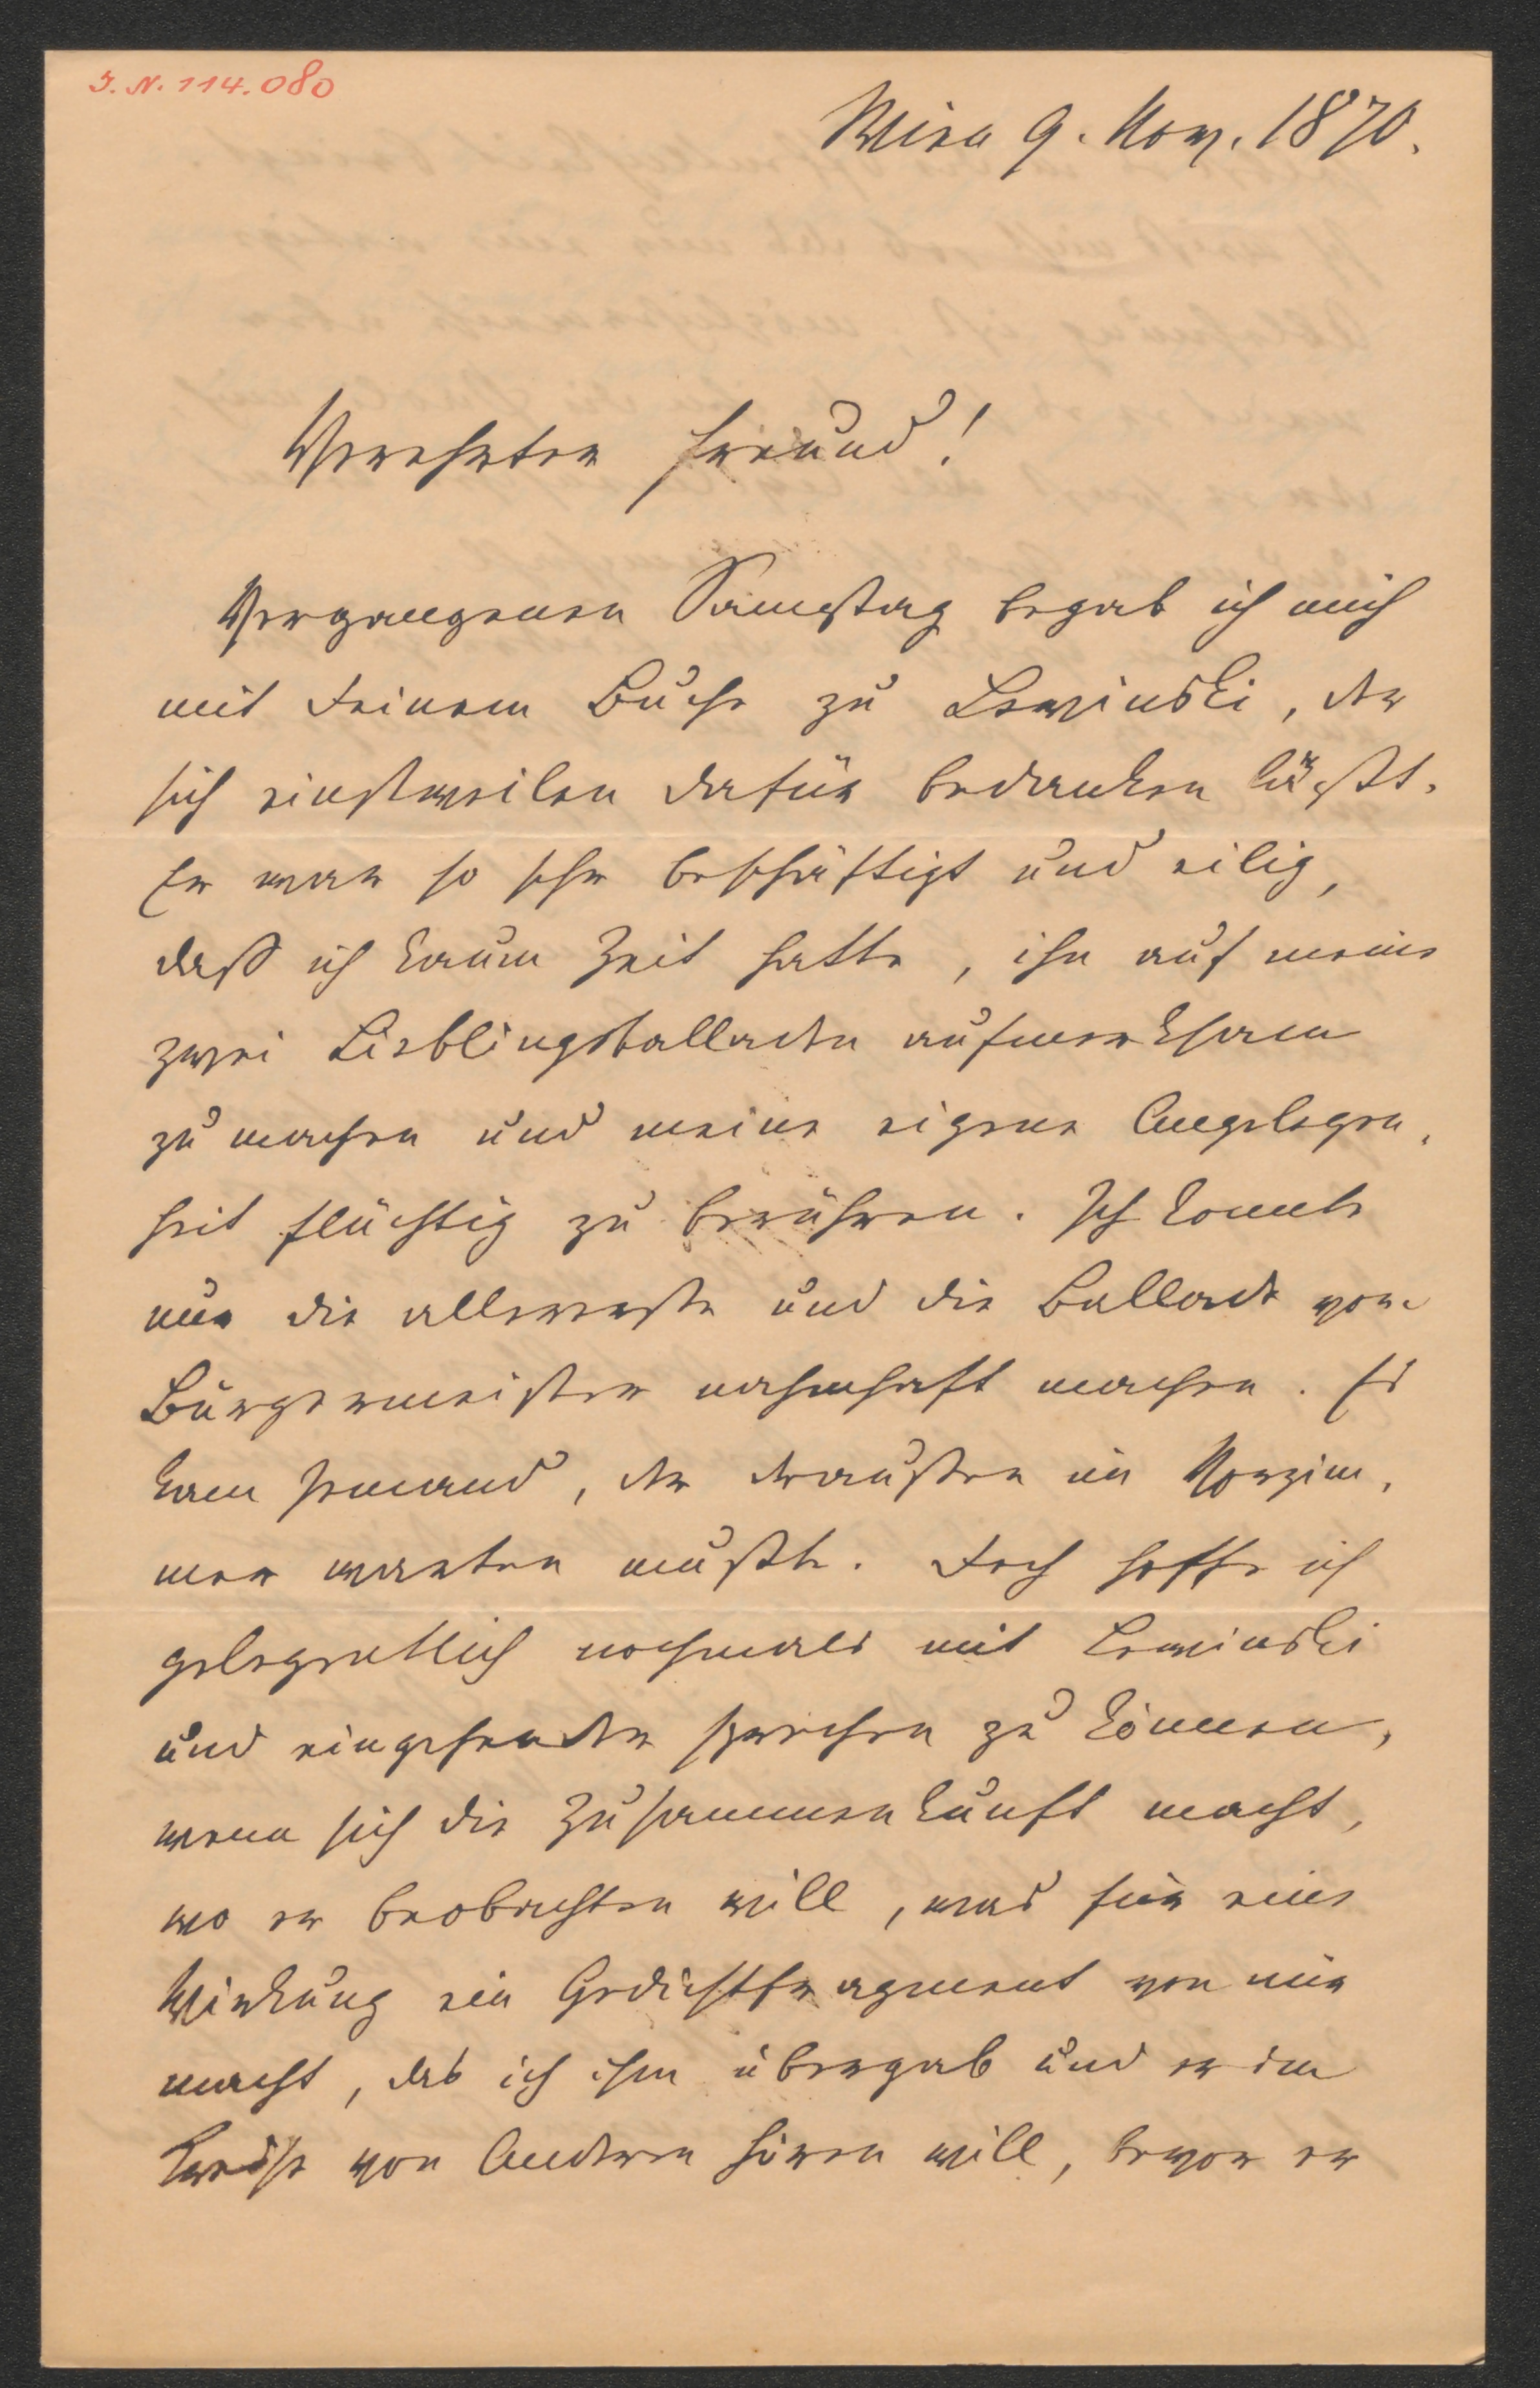 I. N. 114.080
Wien 9. Nov. 1870.
Verehrter Freund!
Vergangenen Samstag begab ich mich
mit Deinem Buche zu Lewinski, der
sich einstweilen dafür bedanken läßt.
Er war so sehr beschäftigt und eilig,
daß ich kaum Zeit hatte, ihn auf meine
zwei Lieblingsballaden aufmerksam
zu machen und meine eigene Angelegen,
heit flüchtig zu berühren. Ich konnte
nur die allererste und die Ballade vom
Bürgermeister nahmhaft machen. Es
kam Jemand, der draußen im Vorzim,
mer warten mußte. Doch hoffe ich
gelegentlich nochmals mit Lewinski
und eingehender sprechen zu können,
wenn sich die Zusammenkunft macht,
wo er beobachten will, was für eine
Wirkung ein Gedichtfragment von mir
macht, das ich ihm übergab und er im
Kreise von Anderen hören will, bevor er